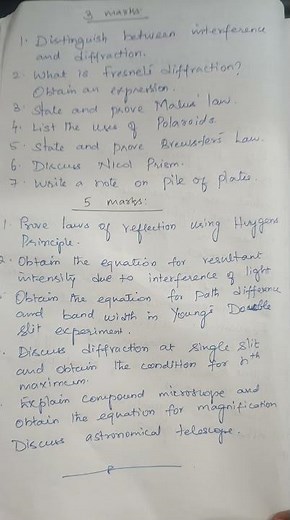 3 marks
1. Distinguish between interference
and diffraction.
2. What is fresnels diffraction?
Obtain an expression.
3. State and prove Malus' law.
4. List the uses of Polaroids.
5. State and prove Brewster's Law.
6. Discuss Nicol Prism.
7. Write a note on pile of plates.
5 marks:
1. Prove laws of reflection using Huygens
Principle.
2. Obtain the equation for resultant
intensity due to interference of light
Obtain the equation for path difference
and band width in Young's Double
slit experiment.
Discuss diffraction at single slit
and obtain the condition for nth
maximum.
Explain compound microscope and
obtain the equation for magnification
Discuss astronomical telescope.